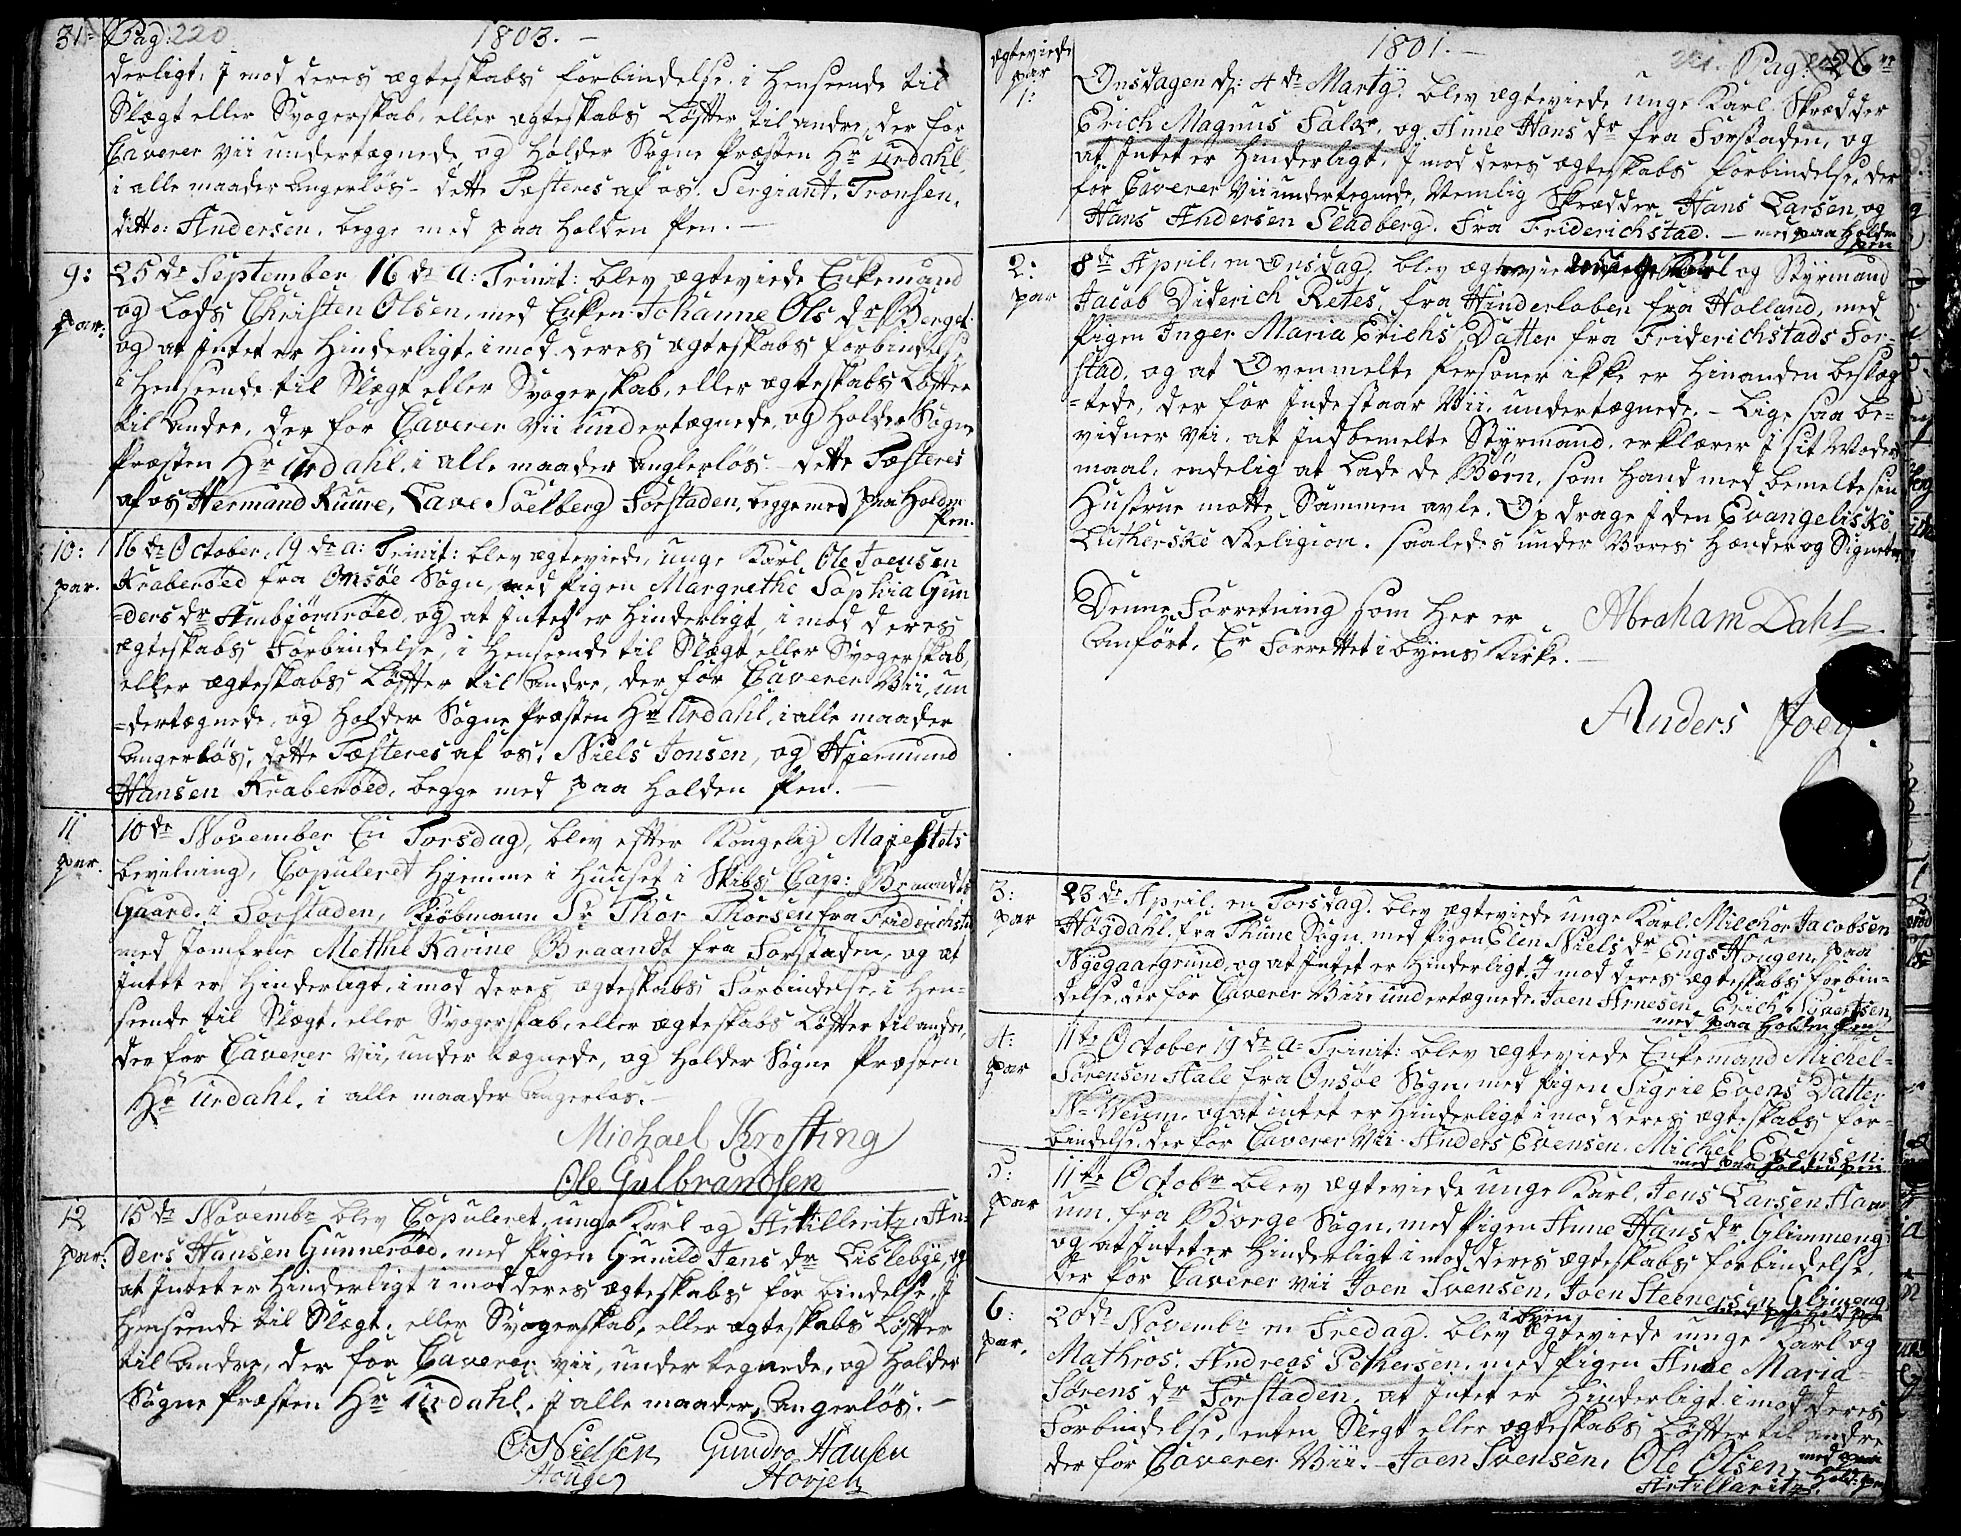 31 Pag: 220 1803. –
derligt, J mod deres ægteskabs forbindelse i Henseende til
Slægt eller Svogerskab, eller ægteskabs Løfter til andre, der for
Caverer vii undertægnede, og holder Sogne Præsten Hr Urdahl,
i alle maader angerløs – dette Tæsteres af os. Sergiant. Tronsen,
ditto: Andersen, begge med paa holden Pen. –
9: 25de September 16de a: Trinit: blev ægteviede Enkemand
par. og Lods Christen Olsen, med Enken Johanne Ols dr Berget
og at Intet er Hinderligt, i mod deres ægteskabs forbindelse
i Henseende til Slægt eller Svogerskab, eller ægteskabs Løfter
til andre, der for Caverer vii undertægnede, og holder Sogne
Præsten Hr Urdahl, i alle maader Anglerløs – dette Tæsteres
af os Hermand Kuure, Lave Soelberg Forstaden, begge med paa Holden
Pen.
10: 16de October, 19de a: Trinit: blev ægteviede, unge Karl, Ole Joensen
par. Kraberøed fra Onsøe Sogn, med Pigen Margrethe Sophia Gun
=ders dr Ambjørnrøed, og at Intet er Hinderligt, i mod deres
ægteskabs Forbindelse, i Henseende til Slægt eller Svogerskab,
eller ægteskabs Løfter til andre, der for Caverer Vii, un
=dertægnede, og holder Sogne Præsten Hr Urdahl, i alle maader
angerløs, dette Tæsteres af os, Niels Jonsen, og Hiermund
Hansen Kraberøed, begge med paa holden Pen. –
11 10de November En Torsdag, blev efter Kongelig Majestets
par. bevilning, Copuleret Hjemme i Huuset i Skibs Cap: Brandts
Gaard i Forstaden, Kiøbmann Sr Thor Thorsen fra Friderichstad
med Jomfrue Methe Karine Braandt fra Forstaden, og at
Intet er Hinderligt, i mod deres ægteskabs Forbindelse, i Hen=
seende til Slægt, eller Svogerskab, eller ægteskabs Løfter til andre,
der for Caverer vii, under tægnede, og holder Sogne Præsten
Hr Urdahl, i alle maader angerløs. –
Michael Krosting
Ole Gulbrandsen
12 15de Novembr blev Copuleret, unge Karl og Artilleritz, An=
par: ders Hansen Gunnerøed, med Pigen Gunild Jens dr Lislebye, og
at Intet er Hinderligt i mod deres ægteskabs for bindelse, J
Henseende til Slægt, eller Svogerskab, eller ægteskabs Løfter
til andre, der for Caverer vii, under tegnede, og holder
Sogne Præsten Hr Urdahl, J alle maader, Angerløs. –
O Nielsen Gundro Hansen
Houge Horjen
ægteviede 1801. – 221. Pag: 26
par
1: Onsdagen d: 4de Martij. blev ægteviede unge Karl, Skrædder
Erich Magnus Falk, og Anne Hans dr fra Forstaden, og
at Intet er Hinderligt, J mod deres ægteskabs forbindelse, der
for Caverer Vii undertegnede, Nemlig Skrædder Hans Larsen, og
Hans Andersen Sladberg. fra Friderichstad. – med paa Holden
pen
2: 8de April, en Onsdag, blev ægteviede og Styrmand
par Jacob Diderich Retes, fra Hinderloben fra Holland, med
Pigen Inger Maria Erichs Datter fra Friderichstads For=
stad, og at Ovenmelte Personer ikke er Hinanden beslæg
=tede, der for Indestaar Vii, undertægnede. – Lige saa be=
vidner vii, at Indbemelte Styrmand, erklærer J sit Moders
maal, endelig at lade de Børn, som hand med bemelte sin
Hustrue motte Sammen avle, Opdrage J den Evangeliske
Lutherske Religion. saaledes under Vores Hænder og Signeter
Denne Forretning som her er Abraham Dahl
anført, Er Forrettet i Byens Kirke. –
Anders
3: 23de April, en Torsdag. blev ægteviede unge Karl, Milchor Jacobsen
par Høgdahl, fra Thune Sogn med Pigen Elen Niels dr Engs Hougen, paa
Nyegaargrund, og at Intet er Hinderligt, J mod deres ægteskabs forbin=
delse, der for Caverer Vii undertægnede, Joen Arnesen, Erich Syvertsen,
med paa Holden Pen
4: 11te October 19de a: Trinit: blev ægteviede Enkemand Michel
par Sørensen Hale fra Onsøe Sogn, med Pigen Sigrie Evens Datter
N: Veum, og at intet er Hinderligt i mod deres ægteskabs for=
bindelse, der for Caverer Vii. Anders Evensen, Michel Evensen.
med paa Holden pen
5: 11te Octobr blev ægteviede unge Karl, Jens Larsen Ham
par um. fra Borge Sogn, med Pigen Anne Hans dr Glimmeng
og at Intet er Hinderligt i mod deres ægteskabs forbindelse,
der for Caverer vii Joen Svensen, Joen Steenersen Glimeng
6: 20de Novembr en Fredag. blev i byen ægteviede unge Karl og
par. Mathros, Andreas Pettersen, med Pigen Anne Maria
Sørens dr Forstaden, at Intet er Hinderligt i mod deres
Forbindelse, enten Slegt eller ægteskabs Løfter til andre
der for Caverer Vii. – Joen Svensen, Ole Olsen, med paa
Artilleritz. Hold: pen